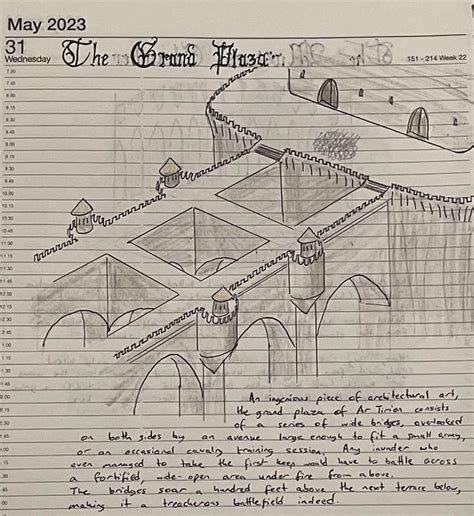 May 2023
31
Wednesday
The Grand Plaza
151 - 214 Week 22
7.30
An ingenious piece of architectural art,
the grand plaza of Ar Tirion consists
of a series of wide bridges, overlooked
on both sides by an avenue large enough to fit a small army,
or an occasional cavalry training session. Any invader who
even managed to take the first keep would have to battle across
a fortified, wide-open area under fire from above.
The bridges soar a hundred feet above the next terrace below,
making it a treacherous battlefield indeed.